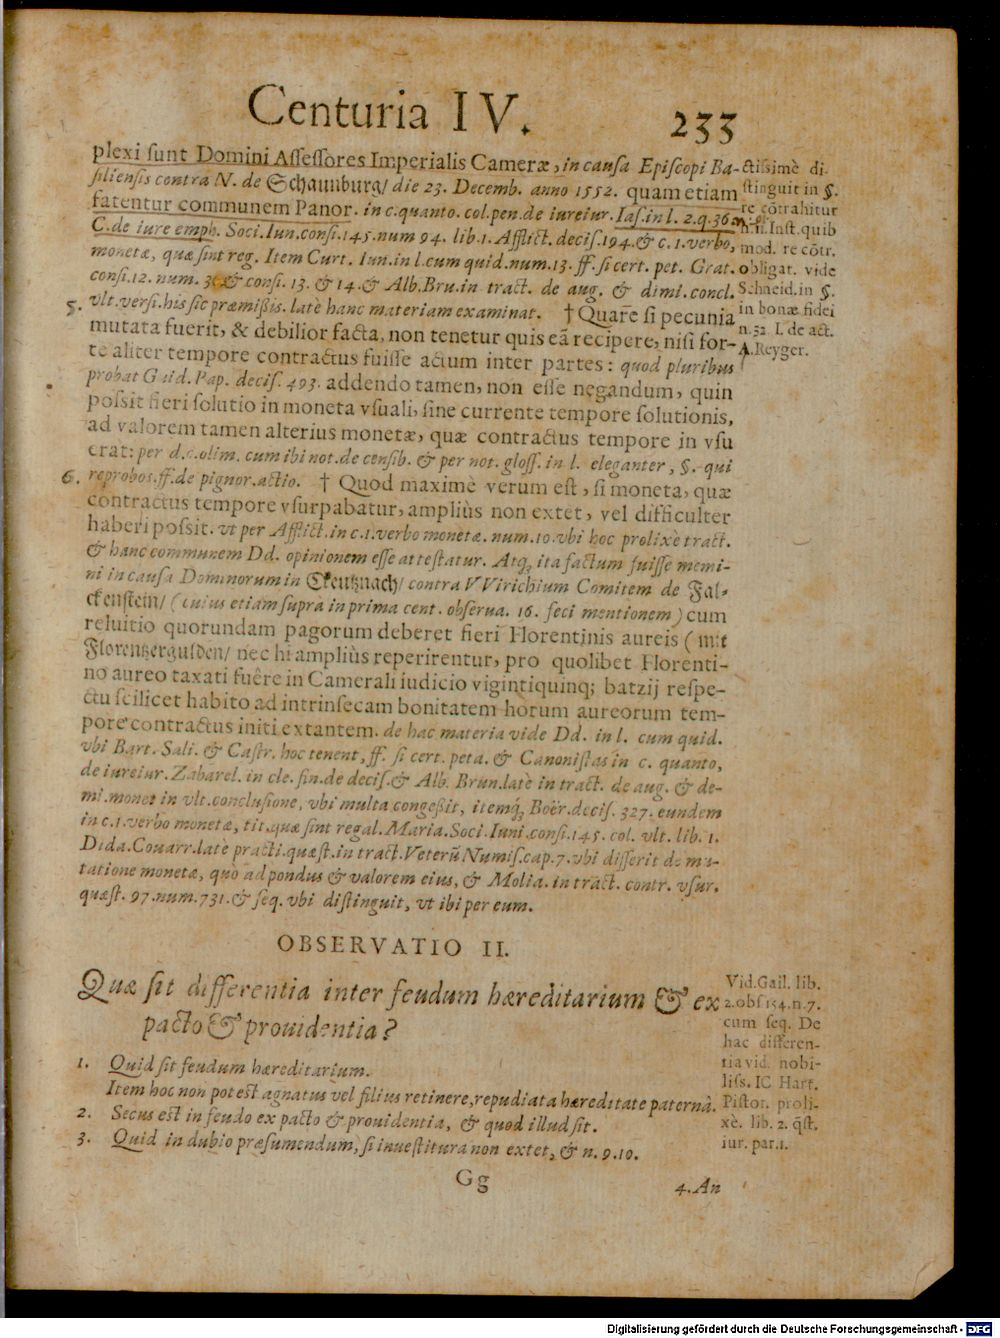 Centuria IV. 233
plexi sunt Domini Assessores Imperialis Cameræ, in causa Episcopi Ba-
siliensis contra N. de Schaunburg/ die 23. Decemb. anno 1552. quam etiam
fatentur communem Panor. in c. quanto. col. pen. de iureiur. Ias. in l. 2. q. 36.
C. de iure emph. Soci. Iun. consi. 145. num 94. lib. 1. Afflict. decis. 194. & c. 1. verbo,
monetæ, quæ sint reg. Item Curt. Iun. in l. cum quid. num. 13. ff. si cert. pet. Grat.
consi. 12. num. & consi. 13. & 14. & Alb. Bru. in tract. de aug. & dimi. concl.
5. vlt. versi. his sic præmißis. latè hanc materiam examinat. † Quare si pecunia
mutata fuerit, & debilior facta, non tenetur quis eã recipere, nisi for-
te aliter tempore contractus fuisse actum inter partes: quod pluribus
probat Guid. Pap. decis. 493. addendo tamen, non esse negandum, quin
possit fieri solutio in moneta vsuali, sine currente tempore solutionis,
ad valorem tamen alterius monetæ, quæ contractus tempore in vsu
erat: per d. c. olim. cum ibi not. de censib. & per not. gloss. in l. eleganter, §. qui
6. reprobos. ff. de pignor. actio. † Quod maximè verum est, si moneta, quæ
contractus tempore vsurpabatur, ampliùs non extet, vel difficulter
haberi possit. vt per Afflict. in c. 1. verbo monetæ. num. 10. vbi hoc prolixè tract.
& hanc communem Dd. opinionem esse attestatur. Atq; ita factum fuisse memi-
ni in causa Dominorum in Creutznach/ contra VVirichium Comitem de Fal-
ckenstein/ (cuius etiam supra in prima cent. obserua. 16. feci mentionem) cum
reluitio quorundam pagorum deberet fieri Florentinis aureis (mit
Florentzergulden/ nec hi ampliùs reperirentur, pro quolibet Florenti-
no aureo taxati fuêre in Camerali iudicio vigintiquinq; batzij respe-
ctu scilicet habito ad intrinsecam bonitatem horum aureorum tem-
pore contractus initi extantem. de hac materia vide Dd. in l. cum quid.
vbi Bart. Sali. & Castr. hoc tenent, ff. si cert. peta. & Canonistas in c. quanto,
de iureiur. Zabarel. in cle. fin. de decis. & Alb. Brun. latè in tract. de aug. & de-
mi. monet in vlt. conclusione, vbi multa congeßit, itemq; Boër. decis. 327. eundem
in c. 1. verbo monetæ, tit. quæ sint regal. Maria. Soci. Iuni. consi. 145. col. vlt. lib. 1.
Dida. Couarr. latè practi. quæst. in tract. Veterũ Numis. cap. 7. vbi disserit de mu-
tatione monetæ, quo ad pondus & valorem eius, & Molia. in tract. contr. vsur.
quæst. 97. num. 731. & seq. vbi distinguit, vt ibi per eum.
ctissimè di-
stinguit in §.
re cõtrahitur
n. 11. Inst. quib
mod. re cõtr.
obligat. vide
Schneid. in §.
in bonæ fidei
n. 32. I. de act.
A. Reyger.
OBSERVATIO II.
Quæ sit differentia inter feudum hæreditarium & ex
pacto & prouidentia?
1. Quid sit feudum hæreditarium.
Item hoc non potest agnatus vel filius retinere, repudiata hæreditate paternà.
2. Secus est in feudo ex pacto & prouidentia, & quod illud sit.
3. Quid in dubio præsumendum, si inuestitura non extet, & n. 9. 10.
Vid. Gail. lib.
2. obs 154. n. 7.
cum seq. De
hac differen-
tia vid. nobi-
liss. IC Hart.
Pistor. proli-
xè. lib. 2. q̃st.
iur. par. 1.
Gg
4. An
Digitalisierung gefördert durch die Deutsche Forschungsgemeinschaft - DFG